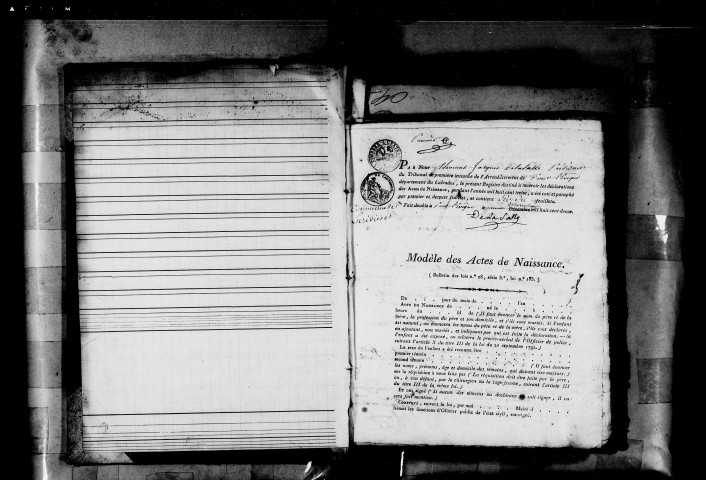 Premier
PAR Nous Thomas Jacques Delasalle Président
du Tribunal de première instance de l'Arrondissement de Pont-l'Evêque
département du Calvados, le présent Registre destiné à recevoir les déclarations
des Actes de Naissance, pendant l'année mil huit cent treize, a été coté et paraphé
par premier et dernier feuillet, et contient feuillets.
Fait double à Pont-l'Evêque décembre mil huit cent douze.
Delasalle
Modèle des Actes de Naissance.
( Bulletin des lois n.º 28, série 3.e, loi n.º 185. )
Du . . . jour du mois de . . . . . l'an . . . .
ACTE DE NAISSANCE de . . . . . né le . . . . . à
heure du . . . fil de . ( Il faut énoncer le nom du père et de la
mère, la profession du père et son domicile, et s'ils sont mariés. Si l'enfant
est naturel, on énoncera les noms du père et de la mère, s'ils sont déclarés,
en ajoutant, non mariés, et indiquant par qui est faite la déclaration. — Si
l'enfant a été exposé, on relatera le procès-verbal de l'Officier de police,
suivant l'article X du titre III de la loi du 20 septembre 1792. )
Le sexe de l'enfant a été reconnu être
premier témoin
second témoin ( Il faut énoncer
les noms, prénoms, âge et domicile des témoins, qui doivent être majeurs. )
sur la réquisition à nous faite par ( La réquisition doit être faite par le père,
ou, à son défaut, par le chirurgien ou la sage-femme, suivant l'article III
du titre III de la même loi. )
Et ont signé ( Si aucun des témoins ou déclarans ne sait signer, il en
sera fait mention. )
CONSTATÉ, suivant la loi, par moi . . . . . Maire d . . . . .
faisant les fonctions d'Officier public de l'état civil, soussigné.